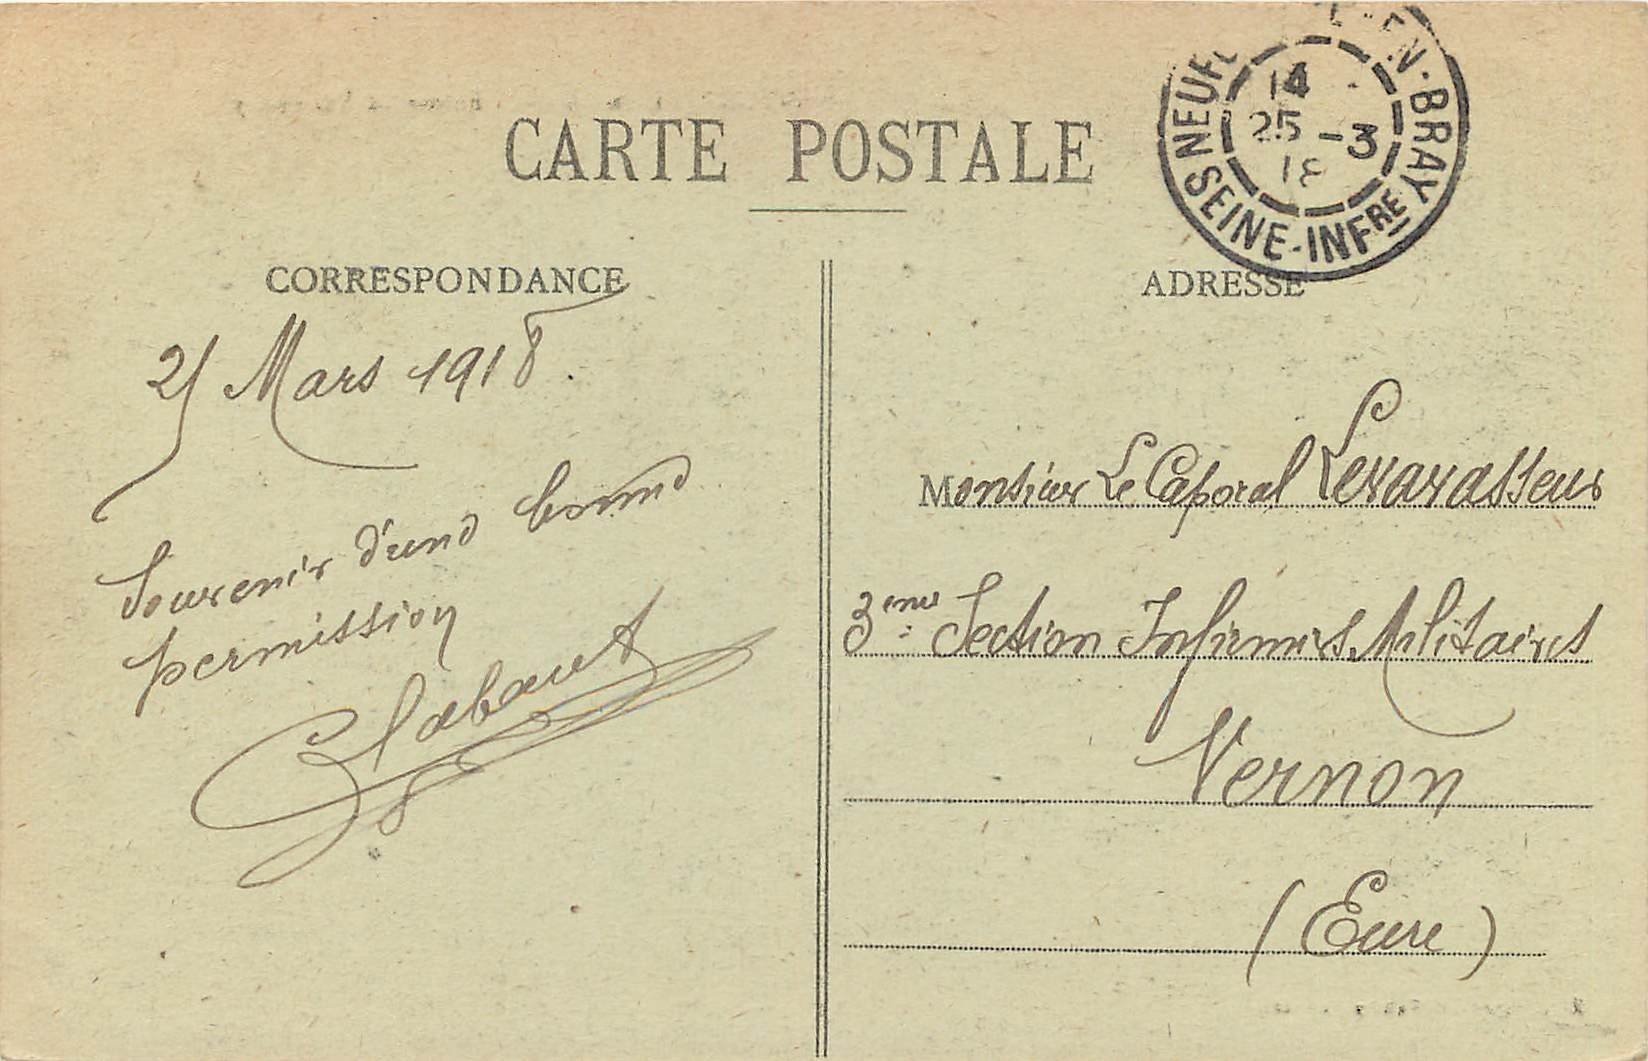 CARTE POSTALE
NEUF EN-BRAY
14
25 -3
18
SEINE-INFRE
CORRESPONDANCE
ADRESSE
Mars 1918.
Souvenir d'une bonne
permission
Monsieur Le Caporal Levavasseur
3eme Section Infirmiers Militaires
Vernon
(Eure)